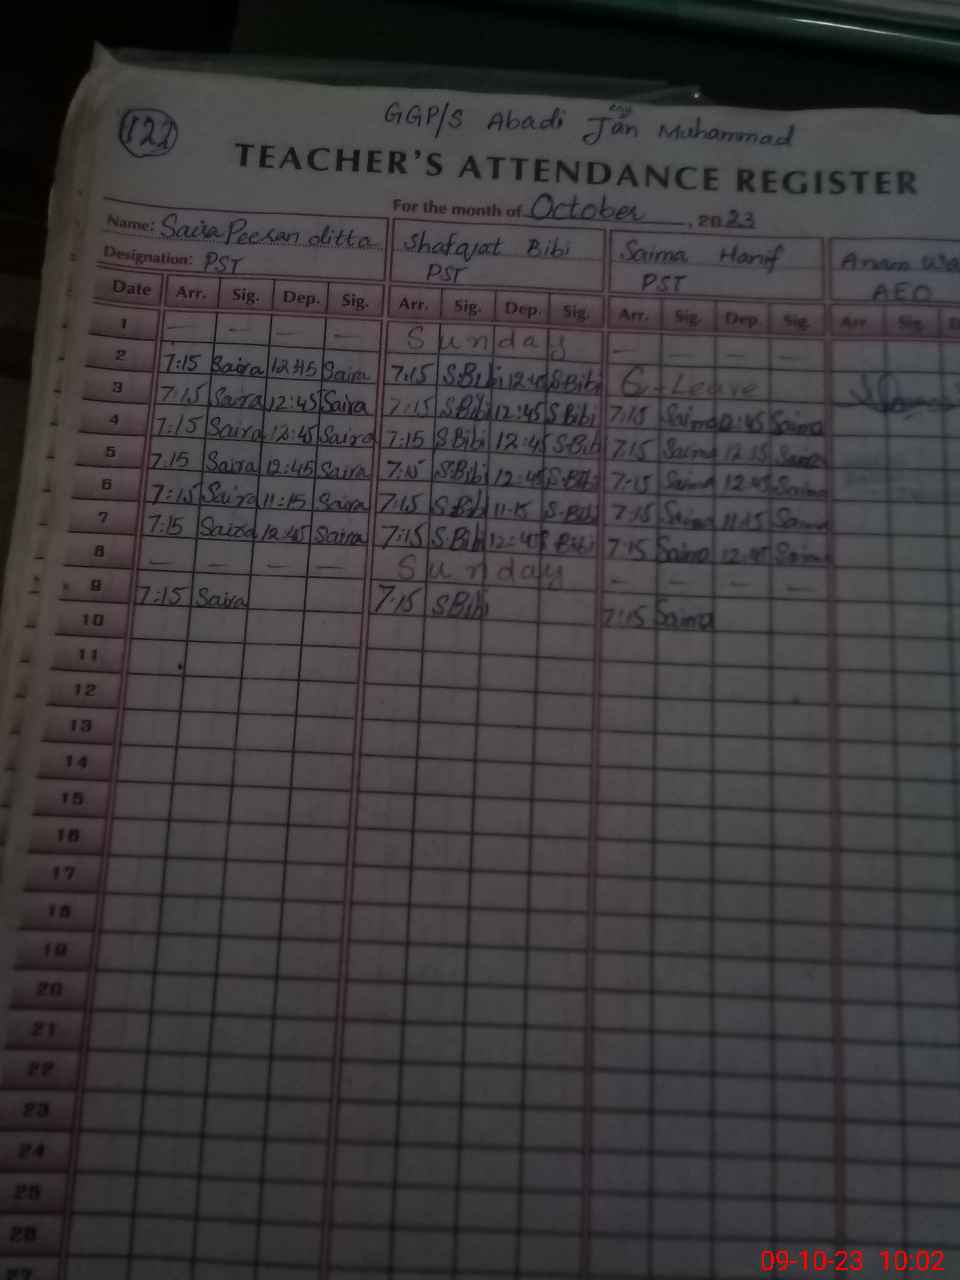 122
GGP/S Abadi Jan Muhammad
TEACHER'S ATTENDANCE REGISTER
For the month of October, 2023
Name: Saira Peeran ditta Shafajat Bibi Saima Hanif Anam
Designation: PST PST PST AEO
Date Arr. Sig. Dep. Sig. Arr. Sig. Dep. Sig. Arr. Sig. Dep. Sig. Arr Sig.
1 — — — — Sunday — — — —
2 7:15 Saira 12:45 Saira 7:15 S.Bibi 12:45 S Bibi Leave
3 7:15 Saira 12:45 Saira 7:15 S.Bibi 12:45 S Bibi 7:15 Saima 12:45 Saima
4 7:15 Saira 12:45 Saira 7:15 S Bibi 12:45 S.Bibi 7:15 Saima 12:15 Saima
5 7:15 Saira 12:45 Saira 7:15 S.Bibi 12:45 S.Bibi 7:15 Saima 12:45 Saima
6 7:15 Saira 11:15 Saira 7:15 S.Bibi 11:15 S.Bibi 7:15 Saima 11:15 Saima
7 7:15 Saira 12:45 Saira 7:15 S.Bibi 12:45 S Bibi 7:15 Saima 12:45 Saima
8 — — — — Sunday — — — —
9 7:15 Saira 7:15 S Bibi 7:15 Saima
10
11
12
13
14
15
16
17
18
19
20
21
22
23
24
25
26
27
09-10-23 10:02